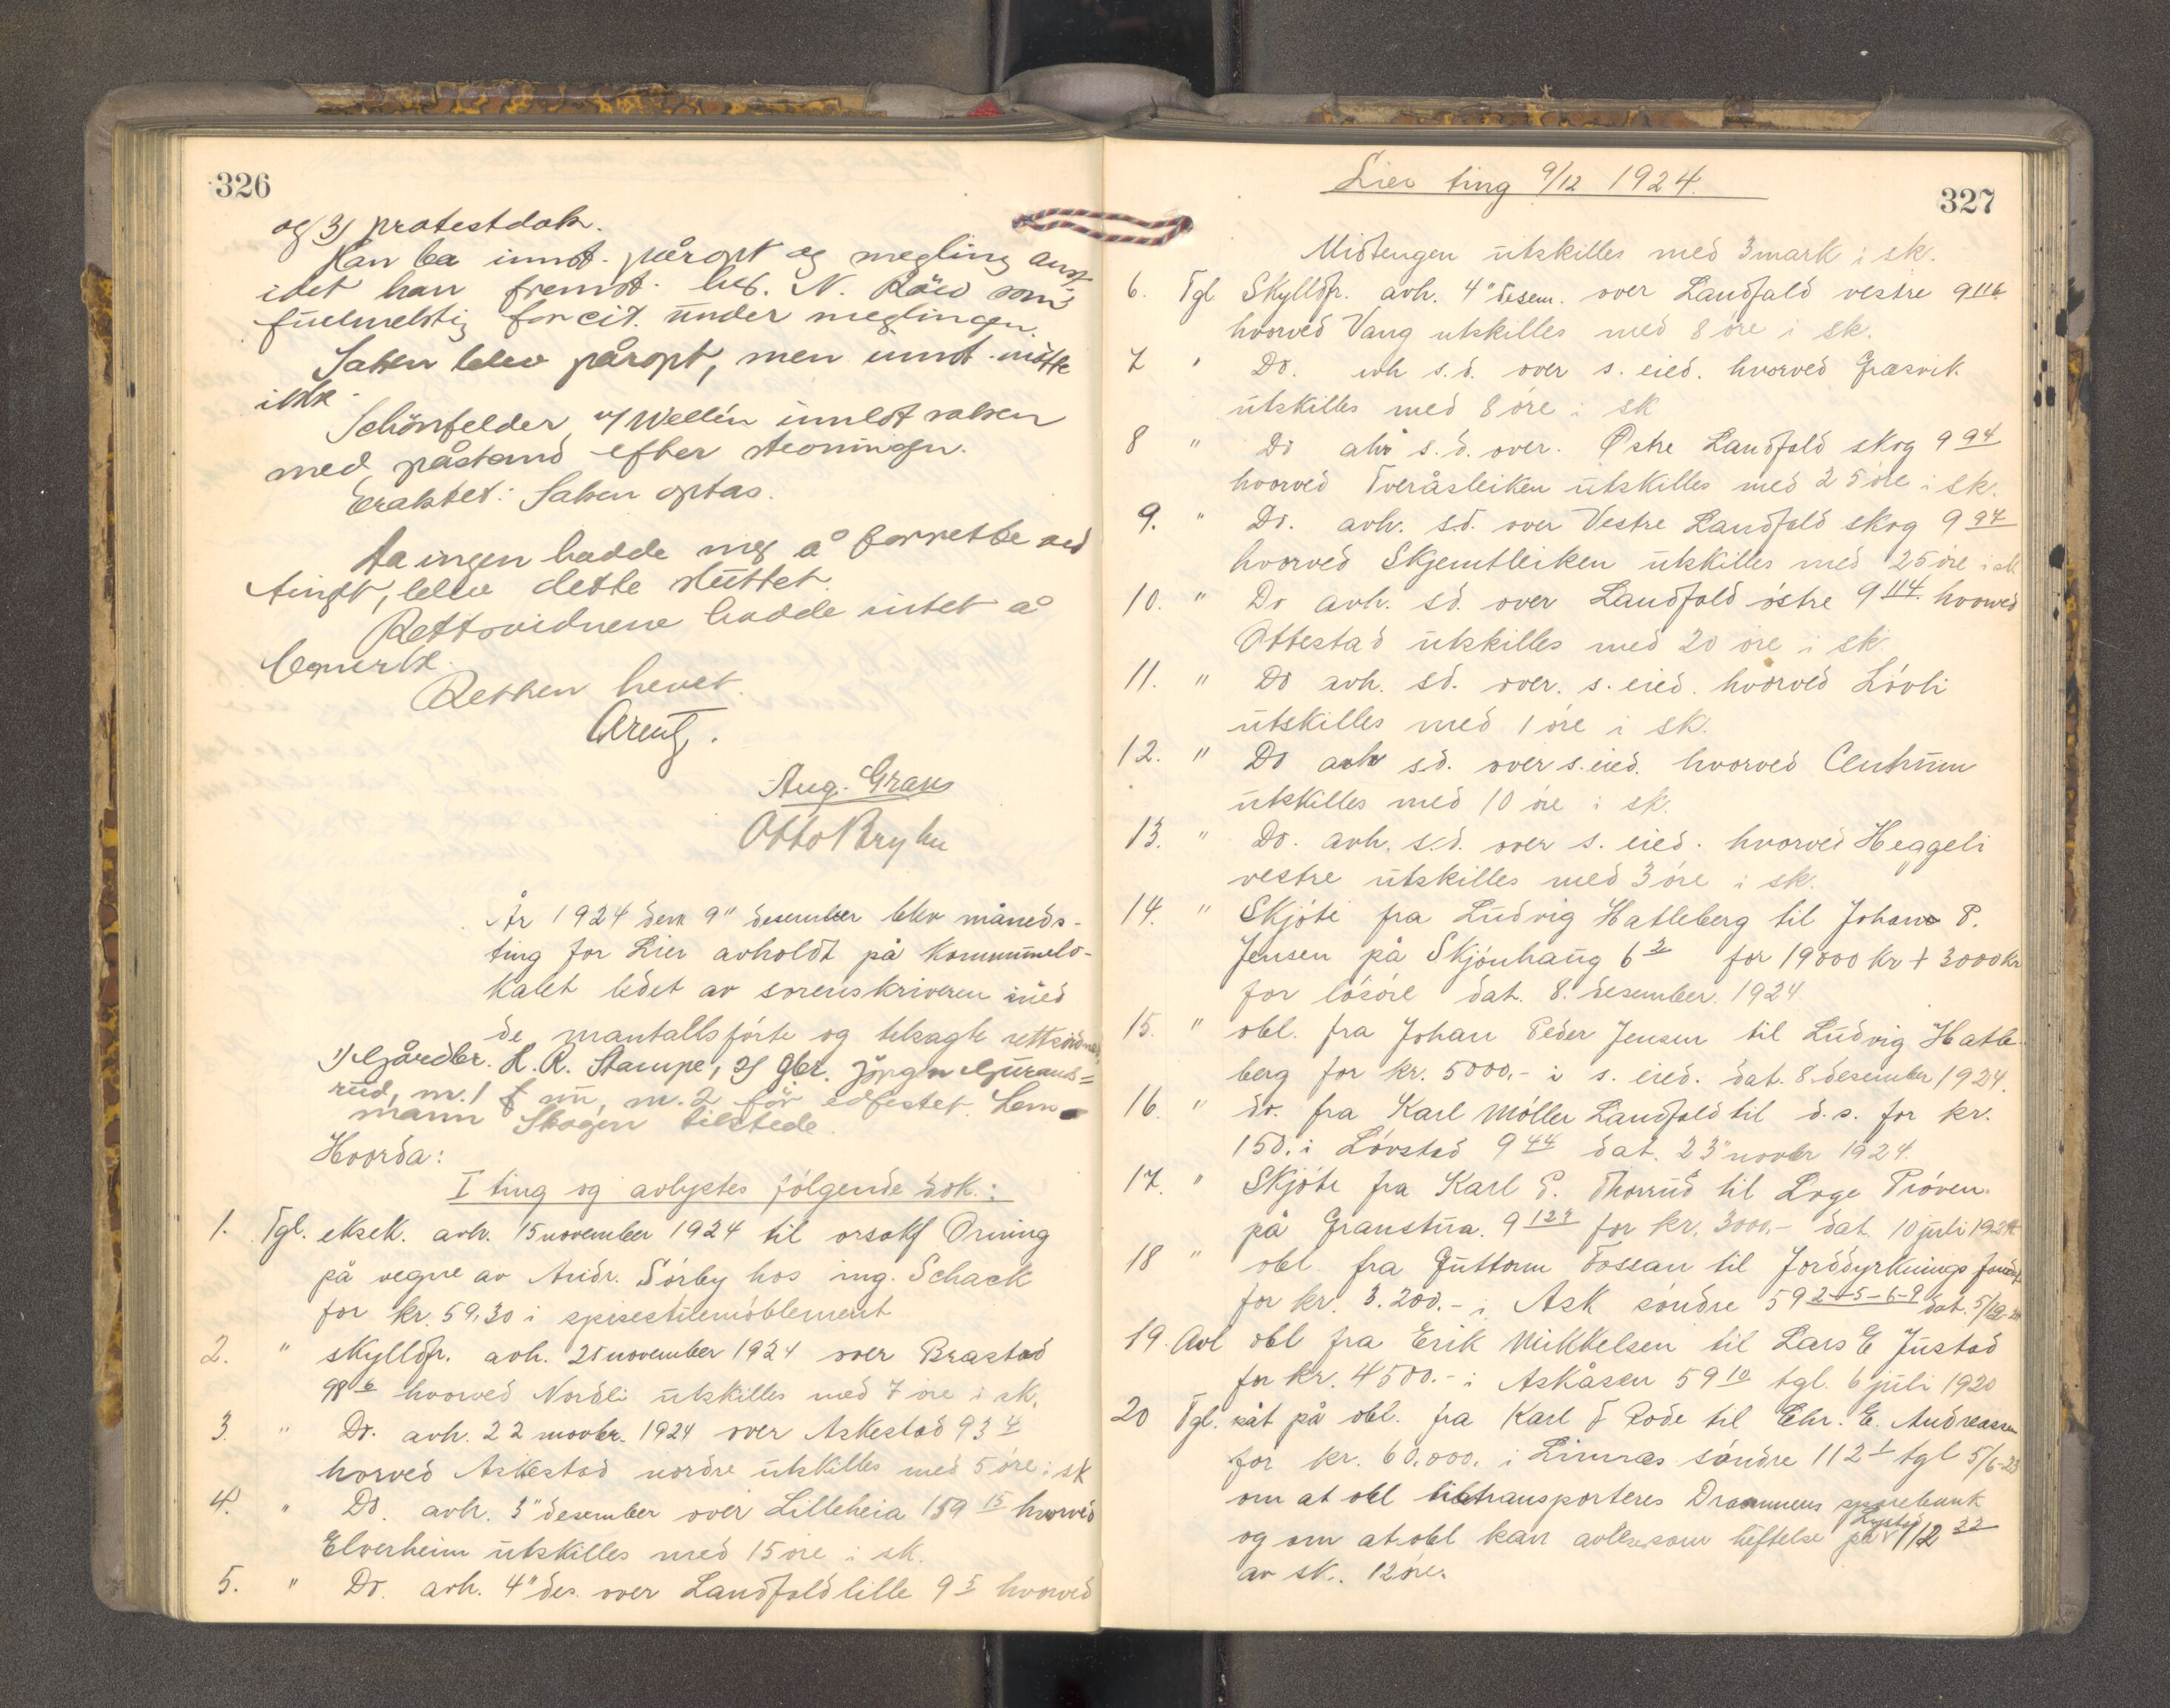 326
og 3) protestdok.
Han ba innst. påropt og megling
idet han fremst. hrs. N. som
for cit. under meglingen.
Saken blev påropt, men innst. møtte
ikke.
Schönfelder v/ Wellén innlot saken
med påstand efter stevningen.
Eraktet: Saken optas.
Da ingen hadde mer å forrette ved
tinget, blev dette sluttet.
Rettsvidnene hadde intet å
bemerke.
Retten hevet.
Arentz.
Aug. Gran
Otto Bryhn
År 1924 den 9" desember blev måneds-
ting for Lier avholdt på kommunelo-
kalet ledet av sorenskriveren med
de mantallsførte og tilsagte rettsvidner
1) Gårdbr. H. R. Stampe, 2) gbr. Jörgen
rud, nr. 1 nu, nr. 2 før edfestet. Lens
mann Skogen tilstede.
Hvorda:
I ting og avlystes følgende dok.:
1. Tgl. eksek. avh. 15 november 1924 til orsakf Orning
på vegne av Andr. Sørby hos ing. Schack
for kr. 59,30 i spisestuemøblement
2. " skylldfr. avh. 21 november 1924 over Brastad
98 6 hvorved Nordli utskilles med 7 øre i sk.
3. " Do. avh. 22 novbr. 1924 over Askestad 93 4
horved Askestad nordre utskilles med 5 øre i sk
4. " Do. avh. 3" desember over Lilleheia 159 15 hvorved
Elverheim utskilles med 15 øre i sk.
5. " Do. avh. 4" des. over Landfald lille 9 5 hvorved
Lier ting 9/12 1924.
327
Midtengen utskilles med 3 mark i sk.
6. Tgl Skylldfr. avh. 4" desem. over Landfald vestre 9 116
hvorved Vang utskilles med 8 øre i sk.
7 " Do. avh s.d. over s. eied. hvorved Græsvik
utskilles med 8 øre i sk
8 " Do avh s.d. over. Østre Landfald skog 9 94
hvorved Tveråsleiken utskilles med 25 øre i sk.
9. " Do. avh. sd. over Vestre Landfald skog 9 94
hvorved Skjemtleiken utskilles med 25 øre i sk
10. " Do avh. sd. over Landfald østre 9 114 hvorved
Ottestad utskilles med 20 øre i sk.
11. " Do avh. sd. over. s. eied. hvorved Løvli
utskilles med 1 øre i sk.
12. " Do avh s.d. over s. eied. hvorved Centrum
utskilles med 10 øre i sk.
13. " Do. avh. s.d. over s. eied. hvorved Heggeli
vestre utskilles med 3 øre i sk.
14. " Skjøte fra Ludvig Hatleberg til Johan P.
Jensen på Skjønhaug 6 3 for 19000 kr + 3000 kr
for løsøre dat. 8. desember. 1924
15. " obl. fra Johan Peder Jensen til Ludvig Hatle
berg for kr. 5000,- i s. eied. dat. 8. desember 1924.
16. " do. fra Karl Møller Landfald til d.s. for kr.
150. i Løvstad 9 44 dat. 23" novbr 1924.
17. " Skjøte fra Karl P. Thorrud til Loge Prøven
på Granstua. 9 123 for kr. 3000,- dat. 10 juli 1924
18 " obl. fra Guttorm Fossan til Jorddyrknings fondet
for kr. 3.200.- i Ask søndre 59 2-5-6-9 dat. 5/12-24
19. Avl obl fra Erik Mikkelsen til Lars E Justad
for kr. 4500.- i Askåsen 59 10 tgl. 6 juli 1920
20 Tgl. påt på obl. fra Karl F Rode til Chr. E. Andreassen
for kr. 60.000. i Linnes søndre 112 1 tgl 5/6-23
om at obl transporteres Drammens sparebank
og om at obl kan avleses som heftelse på Lystad 112 22
av sk. 12 øre.